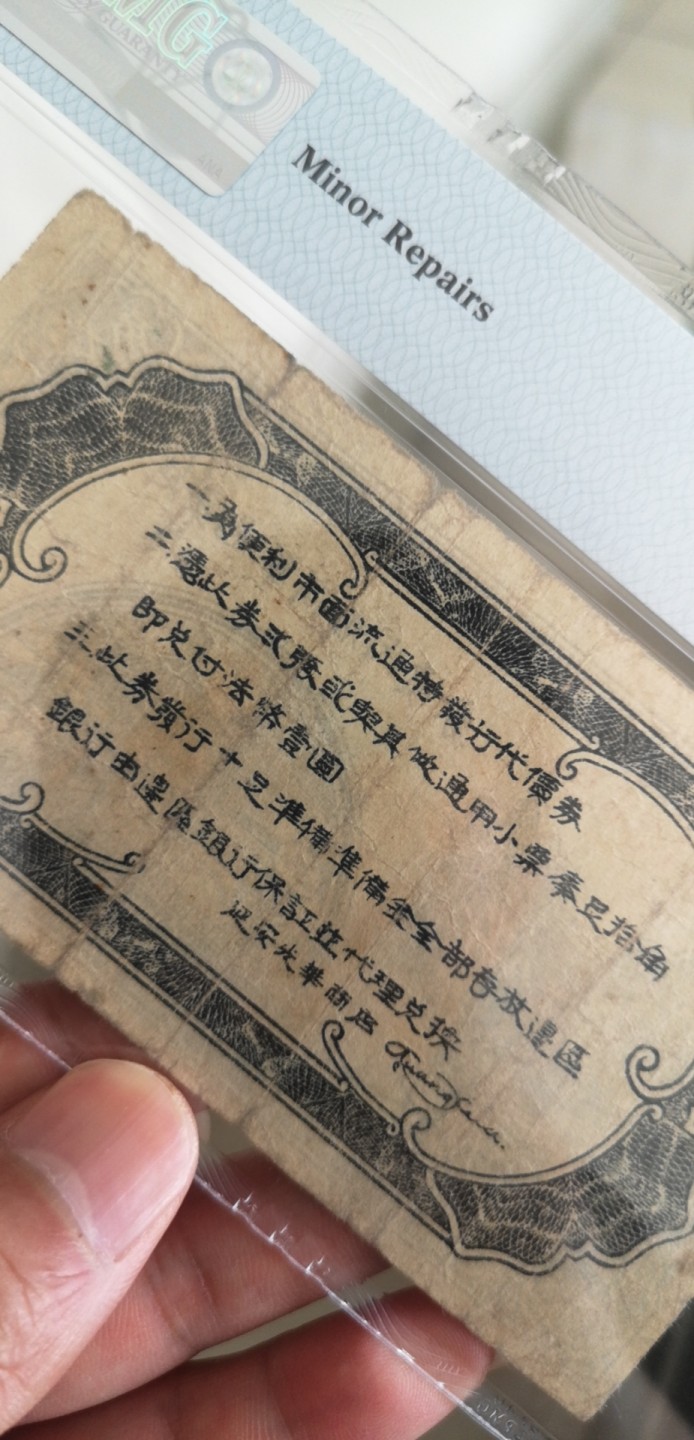 MG
Y GUARANTY
Minor Repairs
一為便利市面流通特發行代價券
二憑此券貳張或與其他通用小票湊足拾角
即兌付法幣壹圓
三此券發行十足準備準備金全部存放邊區
銀行由邊區銀行保証並代理兌換
延安光華商店